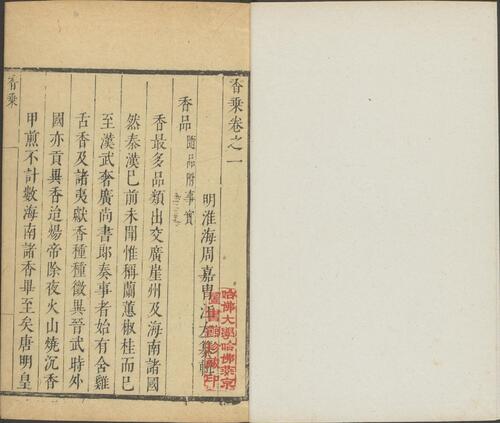 香乘卷之一
明淮海周嘉胄江左纂輯
香品 隨品附事實
香最多品類出交廣崖州及海南諸國
然秦漢已前未聞惟稱蘭蕙椒桂而已
至漢武奢廣尚書郎奏事者始有含雞
舌香及諸夷獻香種種徵異晉武時外
國亦貢異香迨煬帝除夜火山燒沉香
甲煎不計數海南諸香畢至矣唐明皇
香乘
哈佛大學哈佛燕京
圖書館珍藏印